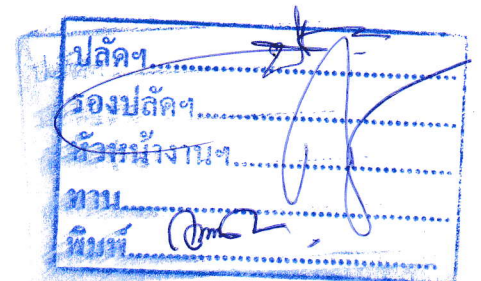 ปลัดฯ
รองปลัดฯ
หัวหน้างานฯ
ทาน
พิมพ์